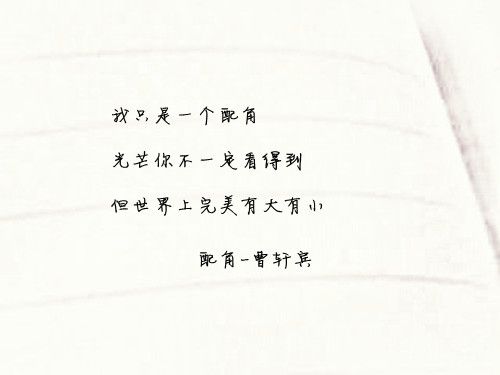 我只是一个配角
光芒你不一定看得到
但世界上完美有大有小
配角-曹轩宾